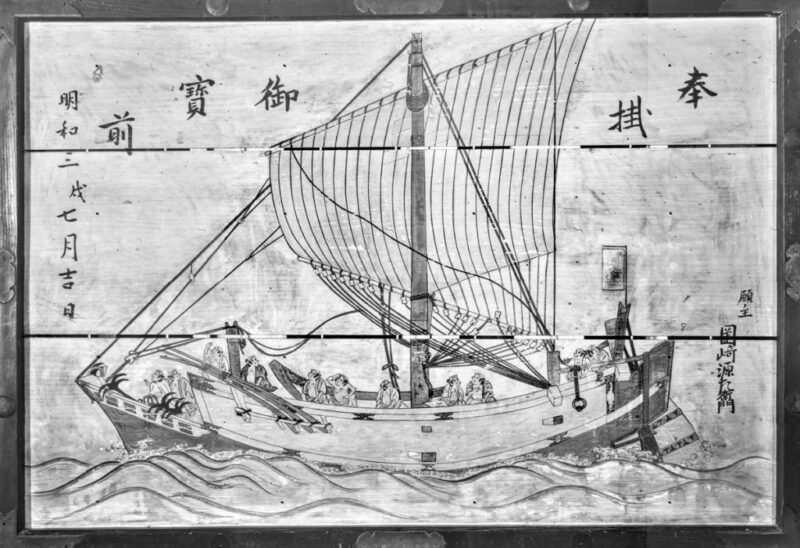 奉
掛
御
寳
前
願主
岡﨑源左衛門
明和三戌七月吉日